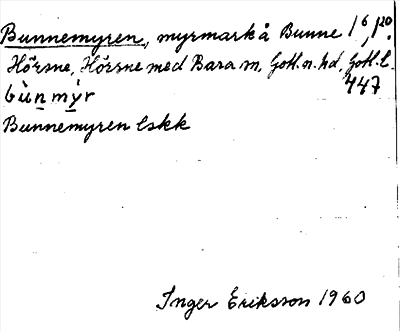 Bunnemyren, myrmark å Bunne 1⁶, 1²⁰.
Hörsne, Hörsne med Bara sn, Gotl. n. hd, Gotl. l.
bùnmỳr 447
Bunnemyren lskk
Inger Eriksson 1960